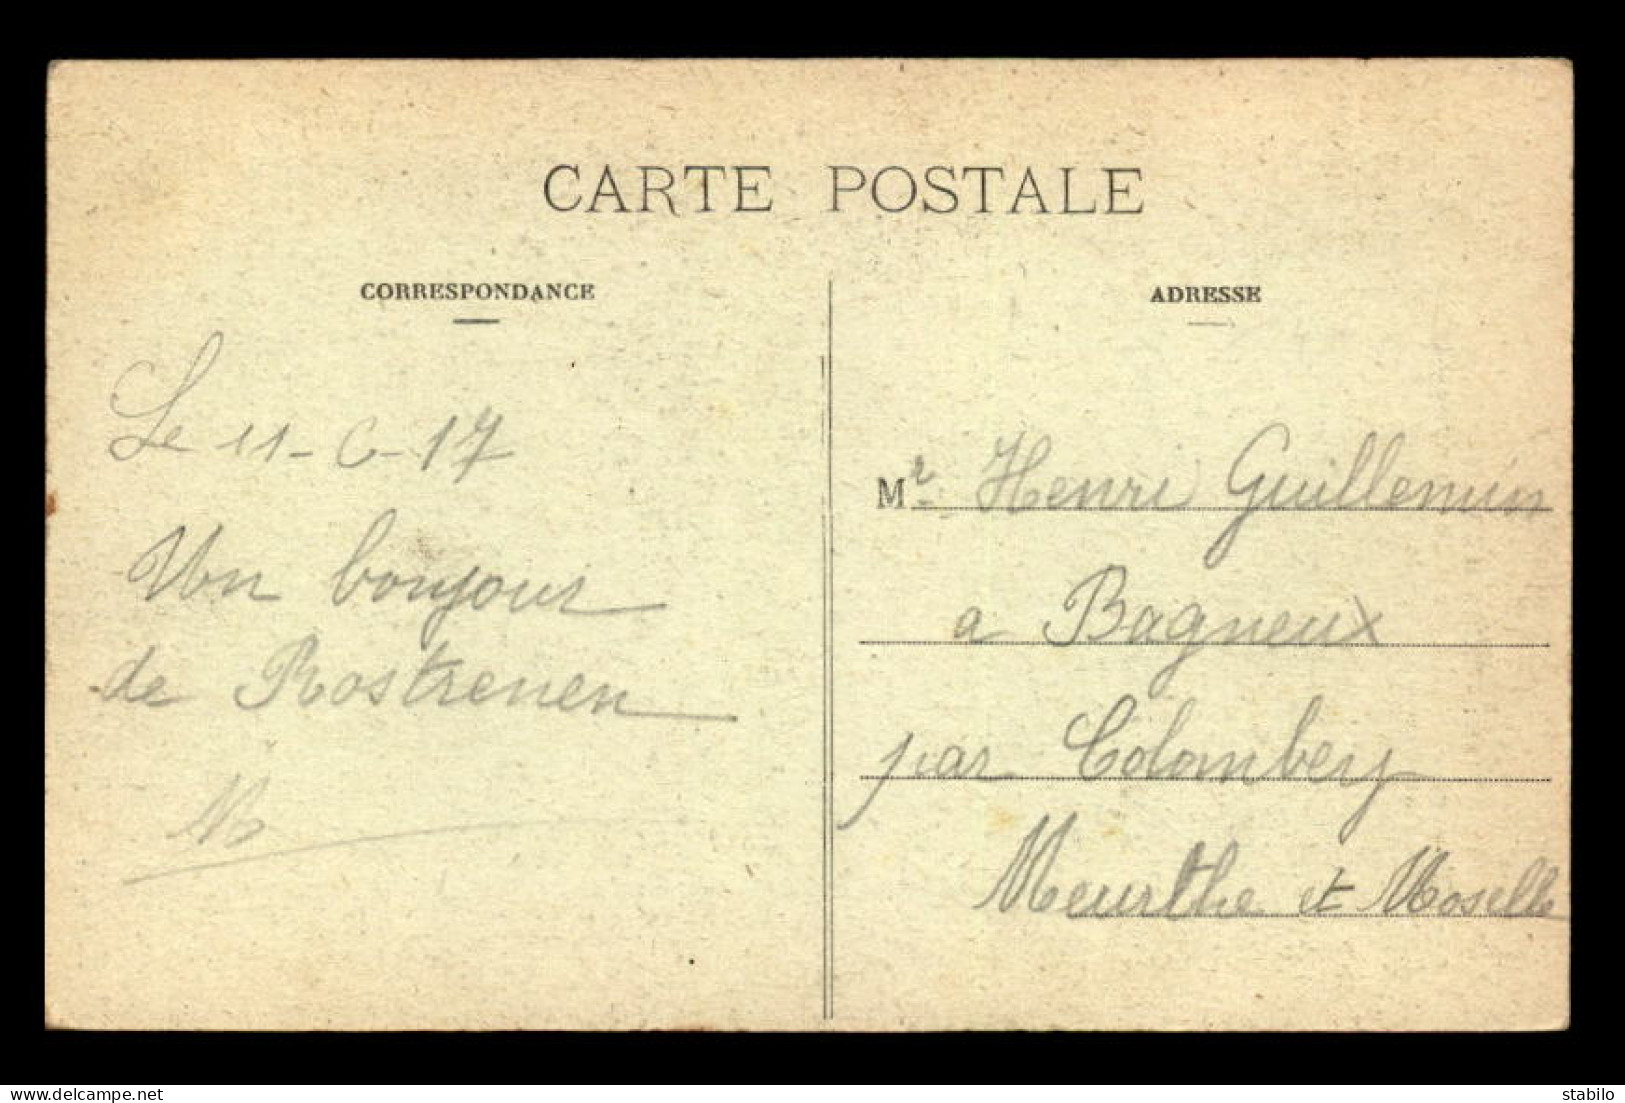 CARTE POSTALE
CORRESPONDANCE
Le 11-6-17
Un bonjour
de Rostrenen
M
ADRESSE
Mr Henri Guillemin
a Bagneux
par Colombey
Meurthe et Moselle
www.delcampe.net
stabilo